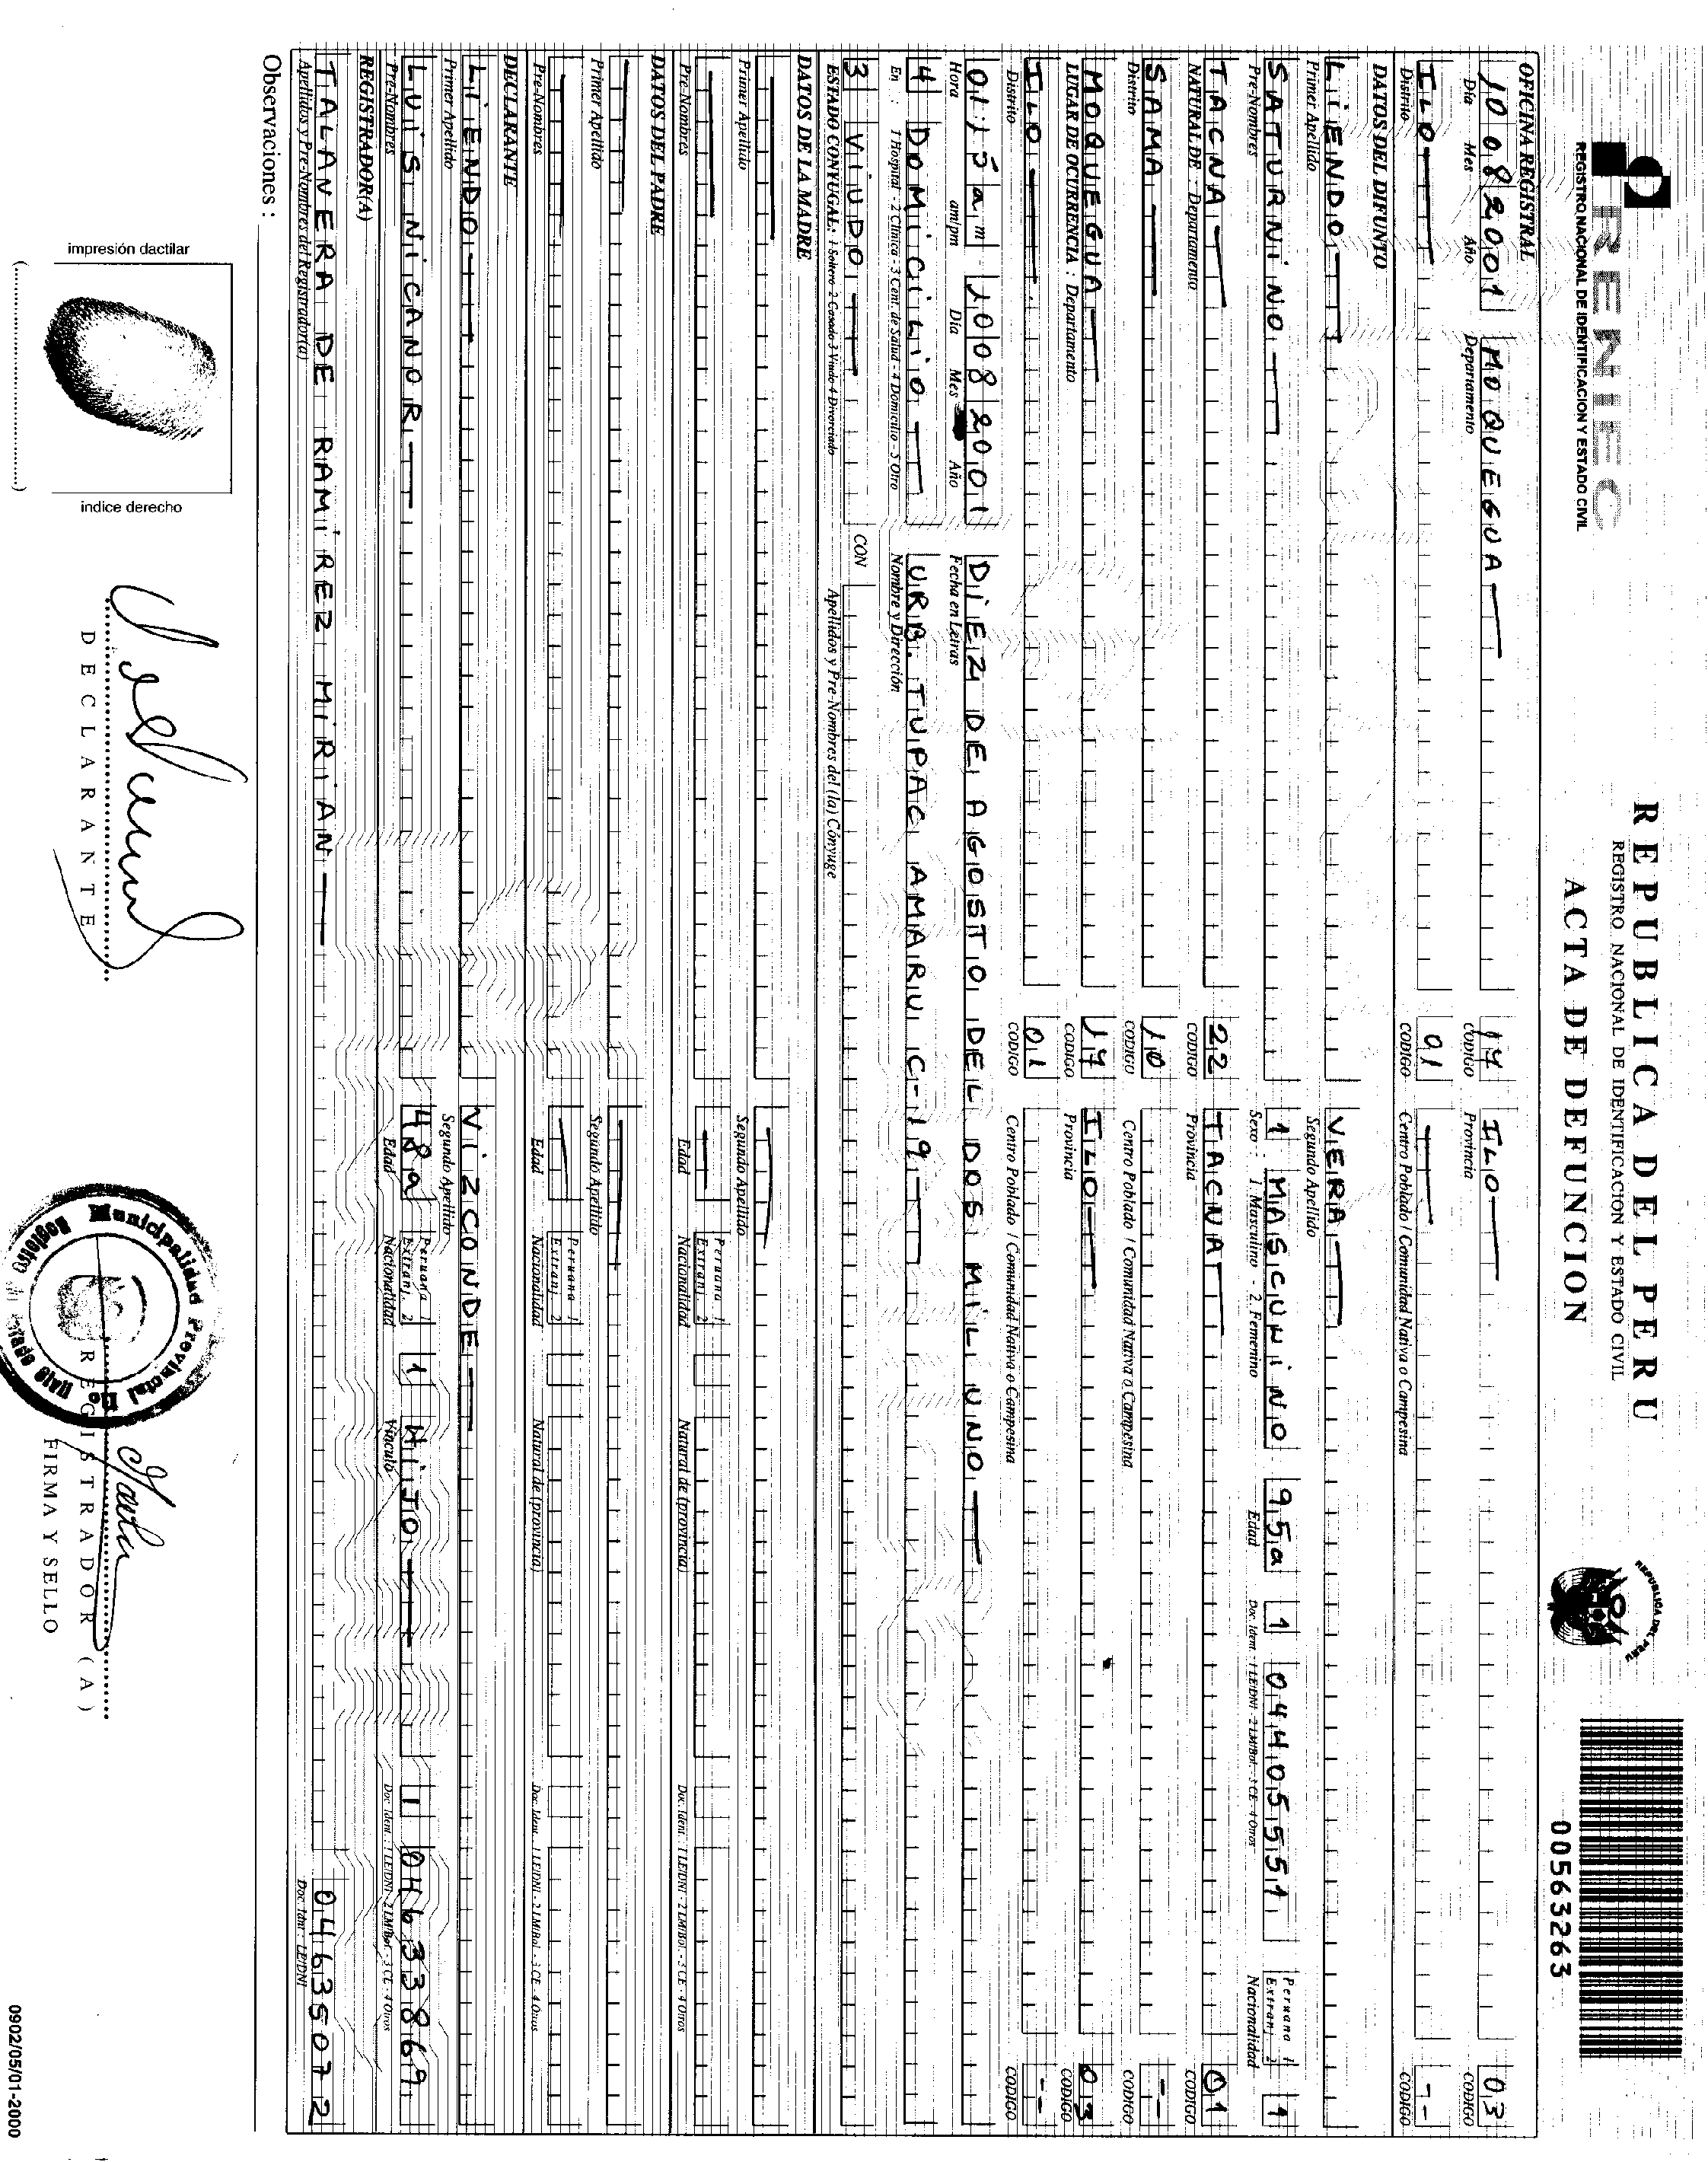 RENIEC
REGISTRO NACIONAL DE IDENTIFICACION Y ESTADO CIVIL
REPUBLICA DEL PERU
REGISTRO NACIONAL DE IDENTIFICACION Y ESTADO CIVIL
ACTA DE DEFUNCION
REPUBLICA DEL PERU
00563263
OFICINA REGISTRAL
10 08 2001 MOQUEGUA 17 ILO 03
Día Mes Año Departamento CODIGO Provincia CODIGO
ILO 01 --
Distrito CODIGO Centro Poblado / Comunidad Nativa o Campesina CODIGO
DATOS DEL DIFUNTO
LIENDO VERA
Primer Apellido Segundo Apellido
SATURNINO 1 MASCUNINO 95a 1 04405551 Peruana 1 Extranj. 2 1
Pre-Nombres Sexo : 1. Masculino - 2. Femenino Edad Doc. Ident. : 1 LE/DNI - 2 LM/Bol. - 3 CE - 4 Otros Nacionalidad
TACNA 22 TACNA 01
NATURAL DE - Departamento CODIGO Provincia CODIGO
SAMA 10 --
Distrito CODIGO Centro Poblado / Comunidad Nativa o Campesina CODIGO
MOQUEGUA 17 ILO 03
LUGAR DE OCURRENCIA : Departamento CODIGO Provincia CODIGO
ILO 01 --
Distrito CODIGO Centro Poblado / Comunidad Nativa o Campesina CODIGO
01:15 am 10 08 2001 DIEZ DE AGOSTO DEL DOS MIL UNO
Hora am/pm Día Mes Año Fecha en Letras
4 DOMICILIO URB. TUPAC AMARU C-19
En : 1 Hospital - 2 Clínica - 3 Cent. de Salud - 4 Domicilio - 5 Otro Nombre y Dirección
3 VIUDO CON
ESTADO CONYUGAL: 1 Soltero 2 Casado 3 Viudo 4 Divorciado Apellidos y Pre-Nombres del (la) Cónyuge
DATOS DE LA MADRE
Primer Apellido Segundo Apellido
Peruana 1 Extranj. 2
Pre-Nombres Edad Nacionalidad Natural de (provincia) Doc. Ident. : 1 LE/DNI - 2 LM/Bol. - 3 CE - 4 Otros
DATOS DEL PADRE
Primer Apellido Segundo Apellido
Peruana 1 Extranj. 2
Pre-Nombres Edad Nacionalidad Natural de (provincia) Doc. Ident. : 1 LE/DNI - 2 LM/Bol. - 3 CE - 4 Otros
DECLARANTE
LIENDO VIZCONDE
Primer Apellido Segundo Apellido
LUIS NICANOR 48a Peruana 1 Extranj. 2 1 HIJO 1 04633869
Pre-Nombres Edad Nacionalidad Vínculo Doc. Ident. : 1 LE/DNI - 2 LM/Bol. - 3 CE - 4 Otros
REGISTRADOR(A)
TALAVERA DE RAMIREZ MIRIAN 04635072
Apellidos y Pre-Nombres del Registrador(a) Doc. Idnt : LE/DNI
Observaciones :
impresión dactilar
índice derecho
DECLARANTE
Municipalidad Provincial De
REGISTRADOR(A)
FIRMA Y SELLO
0902/05/01-2000